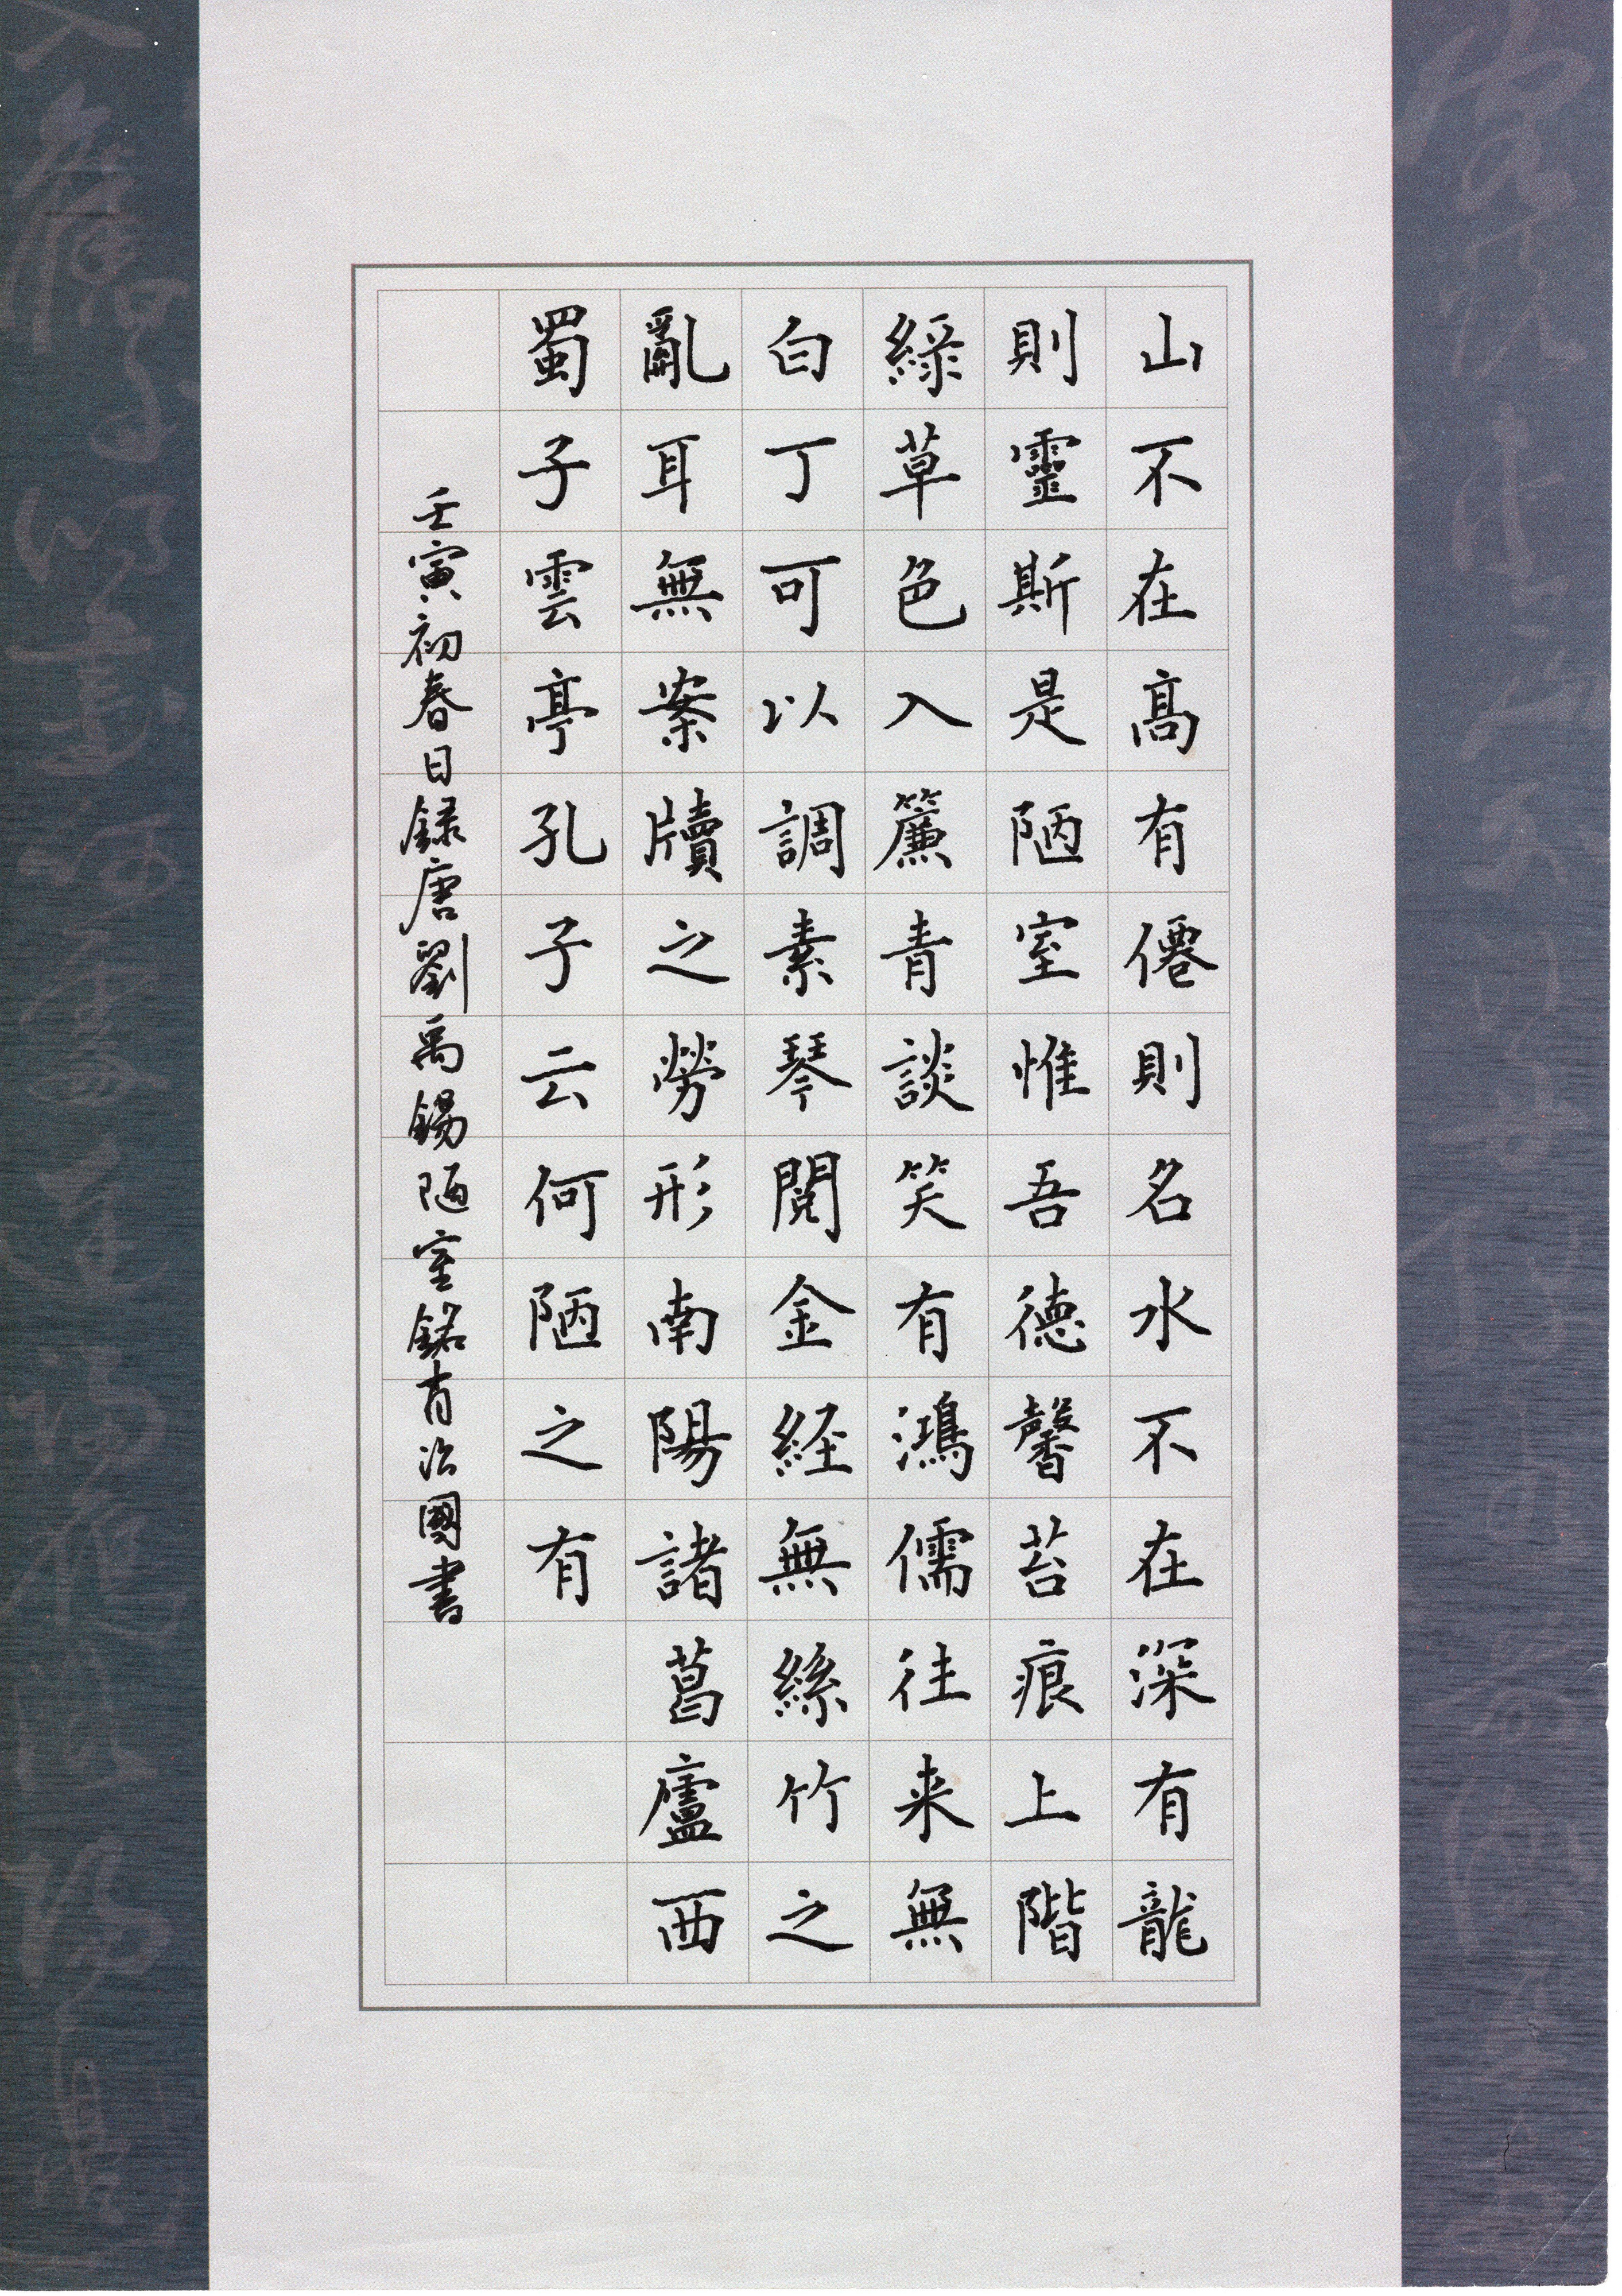 山不在高有僊則名水不在深有龍
則靈斯是陋室惟吾德馨苔痕上階
綠草色入簾青談笑有鴻儒往来無
白丁可以調素琴閱金経無絲竹之
亂耳無案牘之勞形南陽諸葛廬西
蜀子雲亭孔子云何陋之有
壬寅初春日録唐劉禹錫陋室銘肖治國書